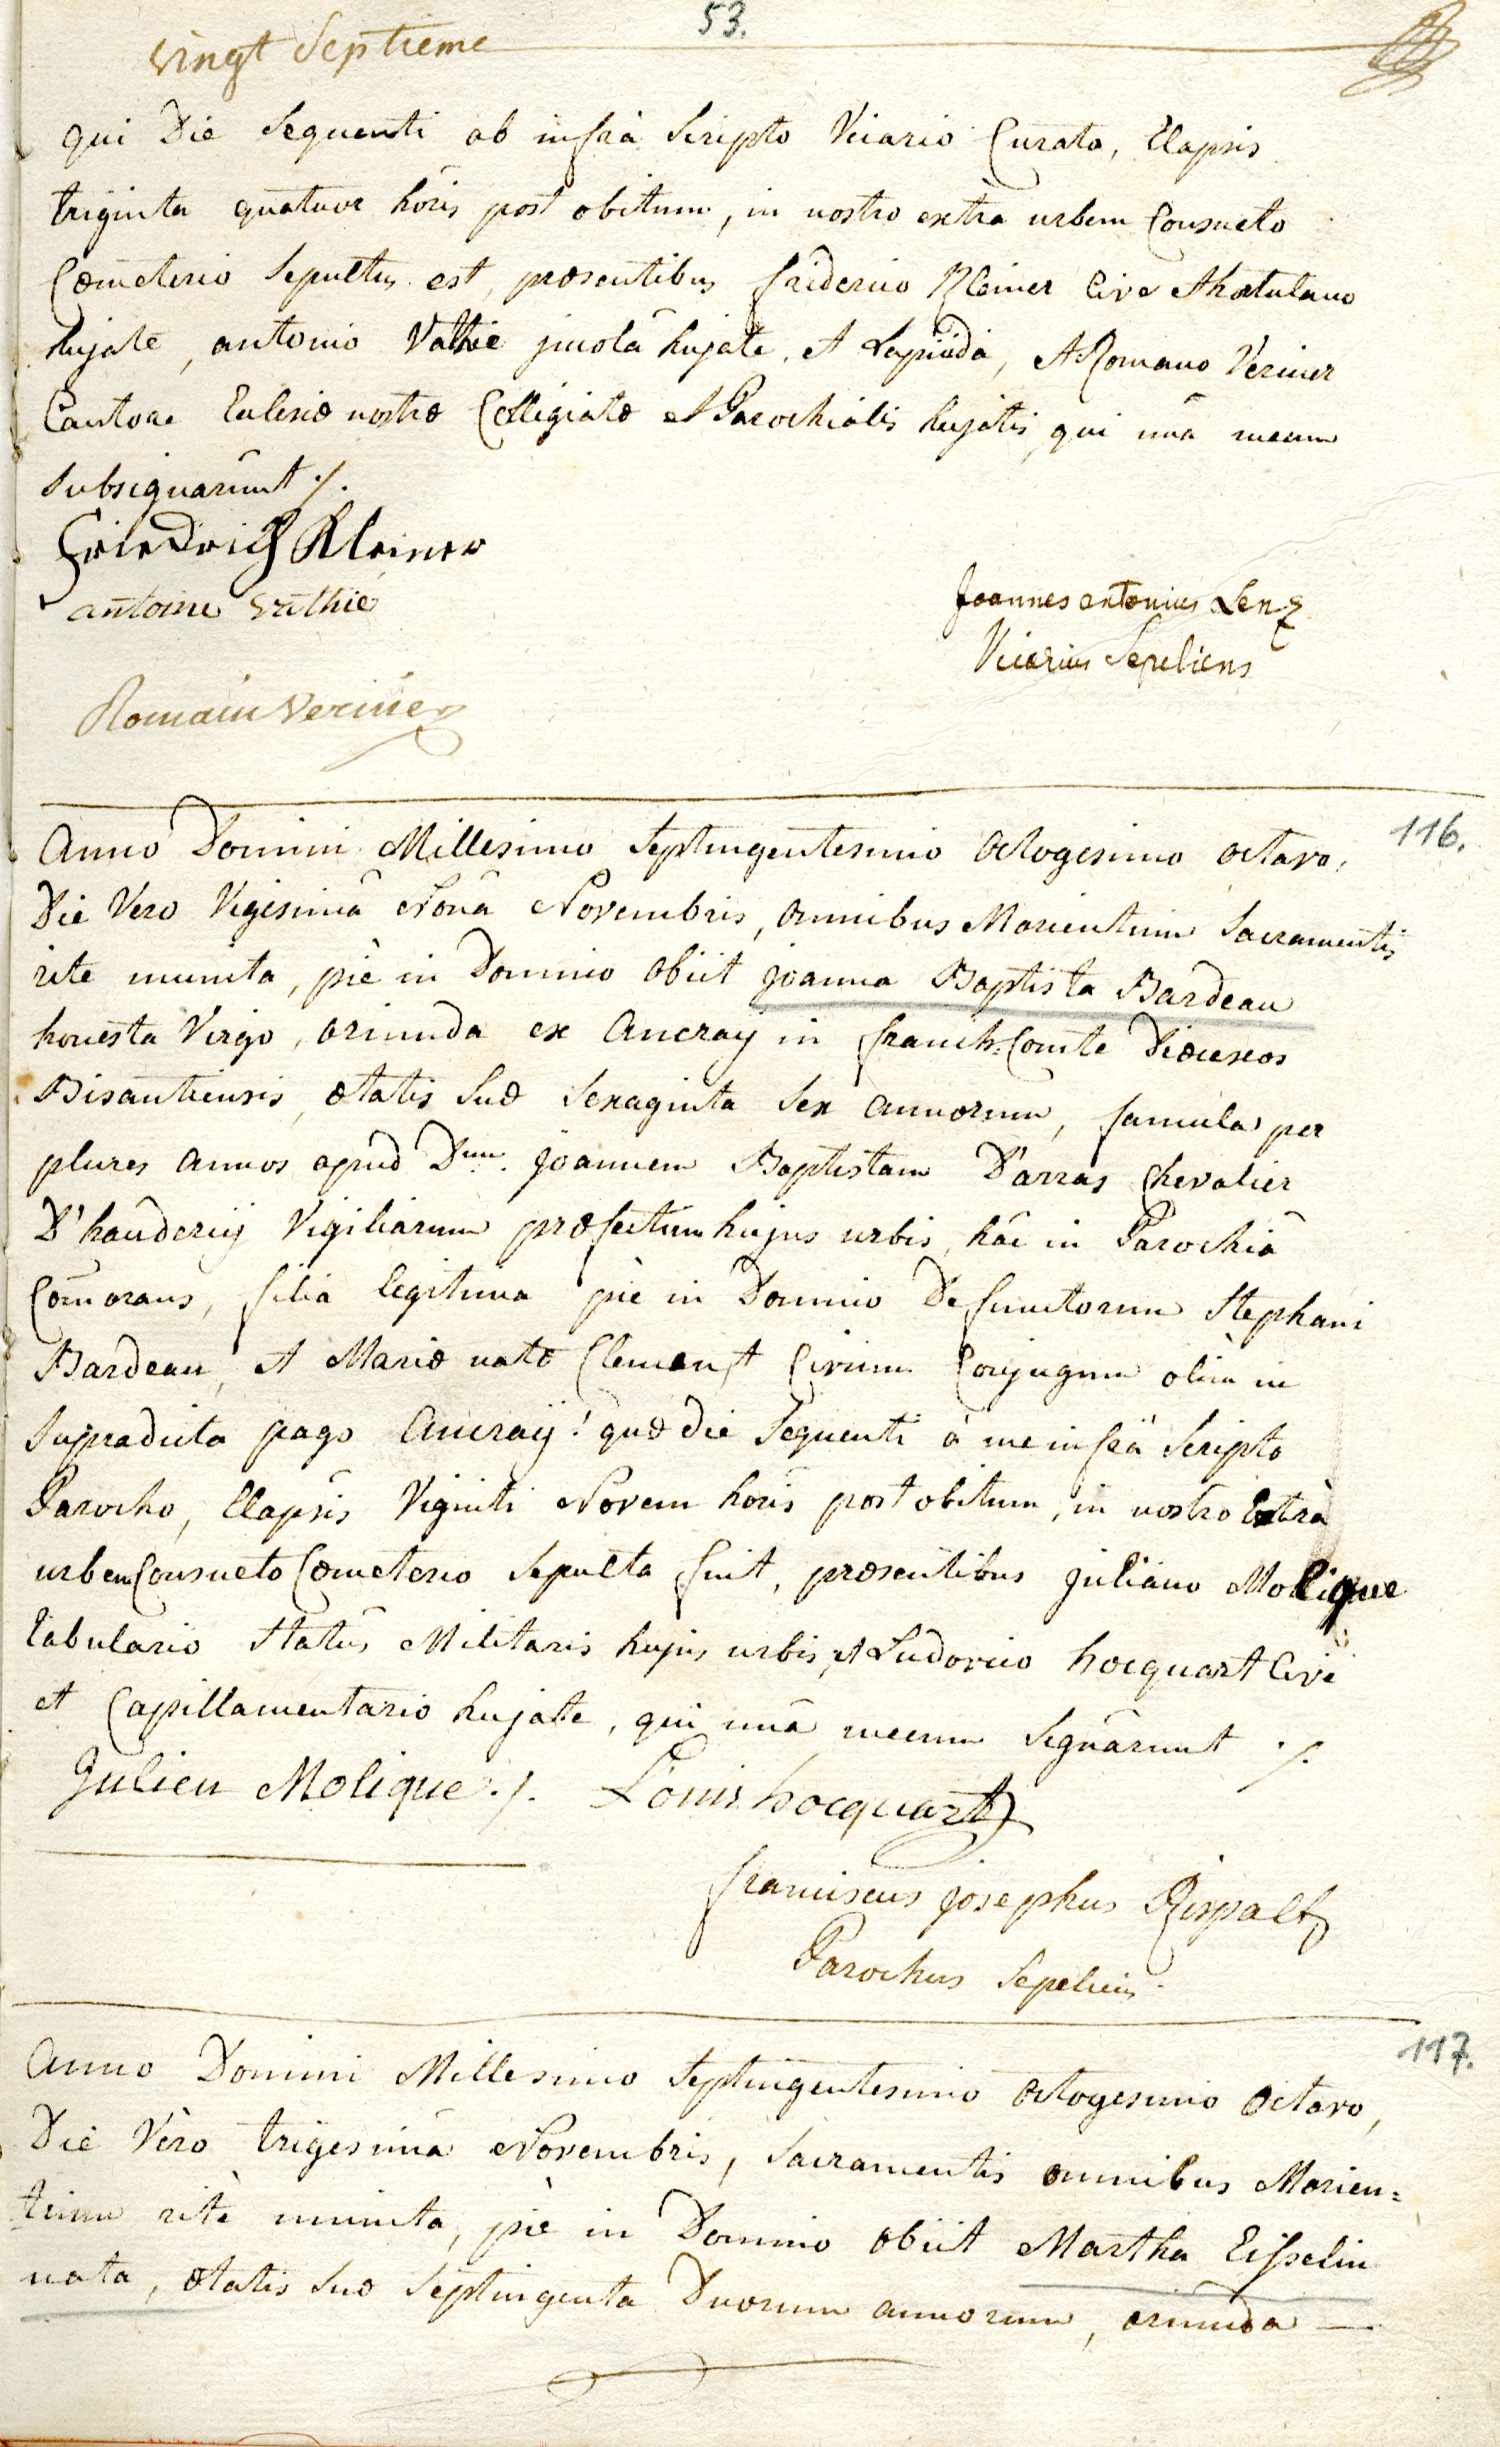 53.
vingt Septieme
qui Die Sequenti ab infrà Scripto Vicario Curato, Elapsis
triginta quatuor horis post obitum, in nostro extra urbem Consueto
Cœmeterio Sepultus est, præsentibus friderico Kleiner Cive & hortulano
hujate, antonio Vathié incola hujate, et Lapicida, et Romano Veriner
Cantore Eclesiæ nostræ Collegiatæ et Parochialis hujatis, qui unà mecum
subsignarunt ./.
Friedrich Kleiner
antoine vathié
Joannes antonius Lenz
Vicarius Sepeliens
Romain Veriner
116.
Anno Domini Millesimo Septingentesimo Octogesimo octavo,
Die Vero Vigesimâ Nonâ Novembris, omnibus Morientium Sacramentis
rite munita, piè in Domino obiit joanna Baptista Bardeau
honesta Virgo, oriunda ex Ancraij in franch-Comte Diœceseos
Bisantiensis, ætatis Suæ Sexaginta Sex annorum, famula per
plures annos apud Dnum. joannem Baptistam D'arras Chevalier
D'haudercij Vigiliarum præfectum hujus urbis, hâc in Parochiâ
Com̃orans, filia legitima piè in Domino Defunctorum Stephani
Bardeau, et Mariæ natæ Clement Civium Conjugum olim in
Supradicto pago Ancraij! quæ die Sequenti à me infrà Scripto
Parocho, Elapsis Viginti Novem horis post obitum, in nostro Extrà
urbem Consueto Cœmeterio Sepulta fuit, præsentibus juliano Molique
tabulario Statûs Militaris hujus urbis, et Ludovico hocquart Cive
et Capillamentario hujate, qui unà mecum Signarunt ./.
Julien Molique ./. Louis hocquart
franciscus josephus Rispalt
Parochus Sepeliens
117.
Anno Domini Millesimo Septingentesimo octogesimo octavo,
Die Vèro trigesimâ Novembris, Sacramentis omnibus Morien=
tium ritè munita, piè in Domino obiit Martha Eisselin
nata, ætatis Suæ Septingenta Duorum annorum, oriunda —